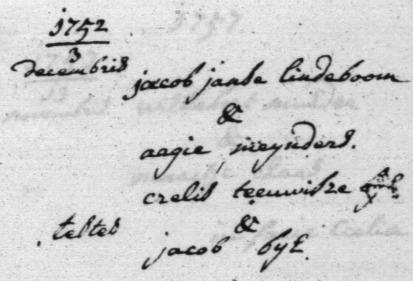 1752
3
decembris jacob janse lindeboom
&
aagie meynders.
crelis teeuwisze
testes &
jacob bye